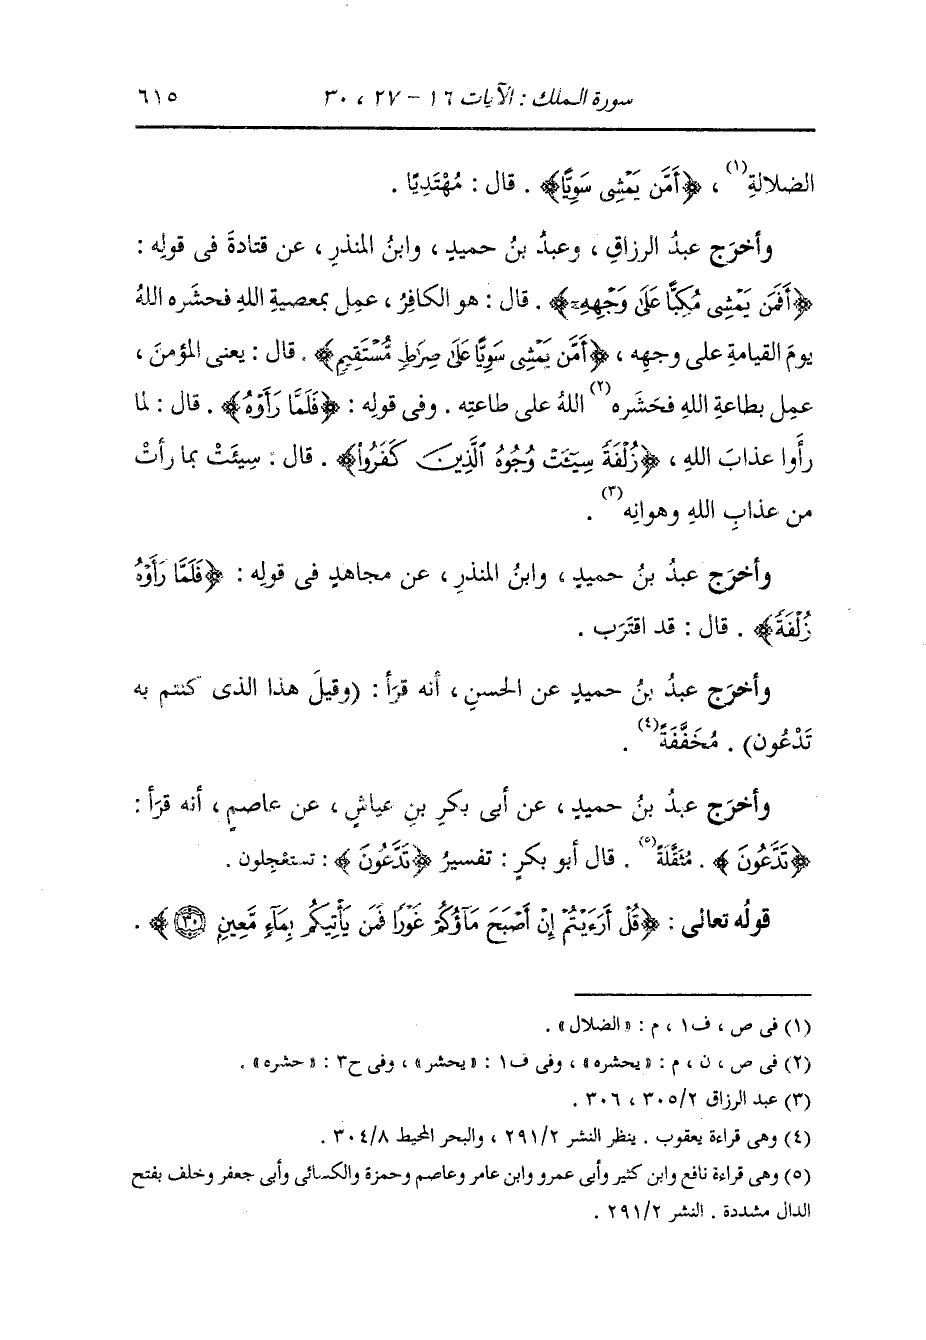 سورة الملك : الآيات ١٦ - ٢٧ ، ٣٠ ٦١٥
الضلالةِ(١) ، ﴿أَمَّن يَمْشِى سَوِيًّا﴾ . قال : مُهْتَدِيًا .
وأخرَج عبدُ الرزاقِ ، وعبدُ بنُ حميدٍ ، وابنُ المنذرِ ، عن قتادةَ فى قولِه :
﴿أَفَمَن يَمْشِى مُكِبًّا عَلَىٰ وَجْهِهِۦٓ﴾ . قال : هو الكافرُ ، عمِل بمعصيةِ اللهِ فحشَره اللهُ
يومَ القيامةِ على وجهِه ، ﴿أَمَّن يَمْشِى سَوِيًّا عَلَىٰ صِرَٰطٍ مُّسْتَقِيمٍ﴾ . قال : يعنى المؤمنَ ،
عمِل بطاعةِ اللهِ فحَشَره(٢) اللهُ على طاعتِه . وفى قولِه : ﴿فَلَمَّا رَأَوْهُ﴾ . قال : لمَّا
رأَوا عذابَ اللهِ ، ﴿زُلْفَةً سِيٓـَٔتْ وُجُوهُ ٱلَّذِينَ كَفَرُوا۟﴾ . قال : سِيئَتْ بما رأتْ
من عذابِ اللهِ وهوانِه(٣) .
وأخرَج عبدُ بنُ حميدٍ ، وابنُ المنذرِ ، عن مجاهدٍ فى قولِه : ﴿فَلَمَّا رَأَوْهُ
زُلْفَةً﴾ . قال : قد اقتَرَب .
وأخرَج عبدُ بنُ حميدٍ عن الحسنِ ، أنه قرَأ : (وقيلَ هذا الذى كنتم به
تَدْعُون) . مُخَفَّفَةً(٤) .
وأخرَج عبدُ بنُ حميدٍ ، عن أبى بكرِ بنِ عياشٍ ، عن عاصمٍ ، أنه قرَأ :
﴿تَدَّعُونَ﴾ . مُثَقَّلَةً(٥) . قال أبو بكرٍ : تفسيرُ ﴿تَدَّعُونَ﴾ : تستعْجِلون .
قولُه تعالى : ﴿قُلْ أَرَءَيْتُمْ إِنْ أَصْبَحَ مَآؤُكُمْ غَوْرًا فَمَن يَأْتِيكُم بِمَآءٍ مَّعِينٍۭ ٣٠﴾ .
(١) فى ص ، ف١ ، م : «الضلال» .
(٢) فى ص ، ن ، م : «يحشره» ، وفى ف١ : «يحشر» ، وفى ح٣ : «حشره» .
(٣) عبد الرزاق ٣٠٥/٢ ، ٣٠٦ .
(٤) وهى قراءة يعقوب . ينظر النشر ٢٩١/٢ ، والبحر المحيط ٣٠٤/٨ .
(٥) وهى قراءة نافع وابن كثير وأبى عمرو وابن عامر وعاصم وحمزة والكسائى وأبى جعفر وخلف بفتح
الدال مشددة . النشر ٢٩١/٢ .